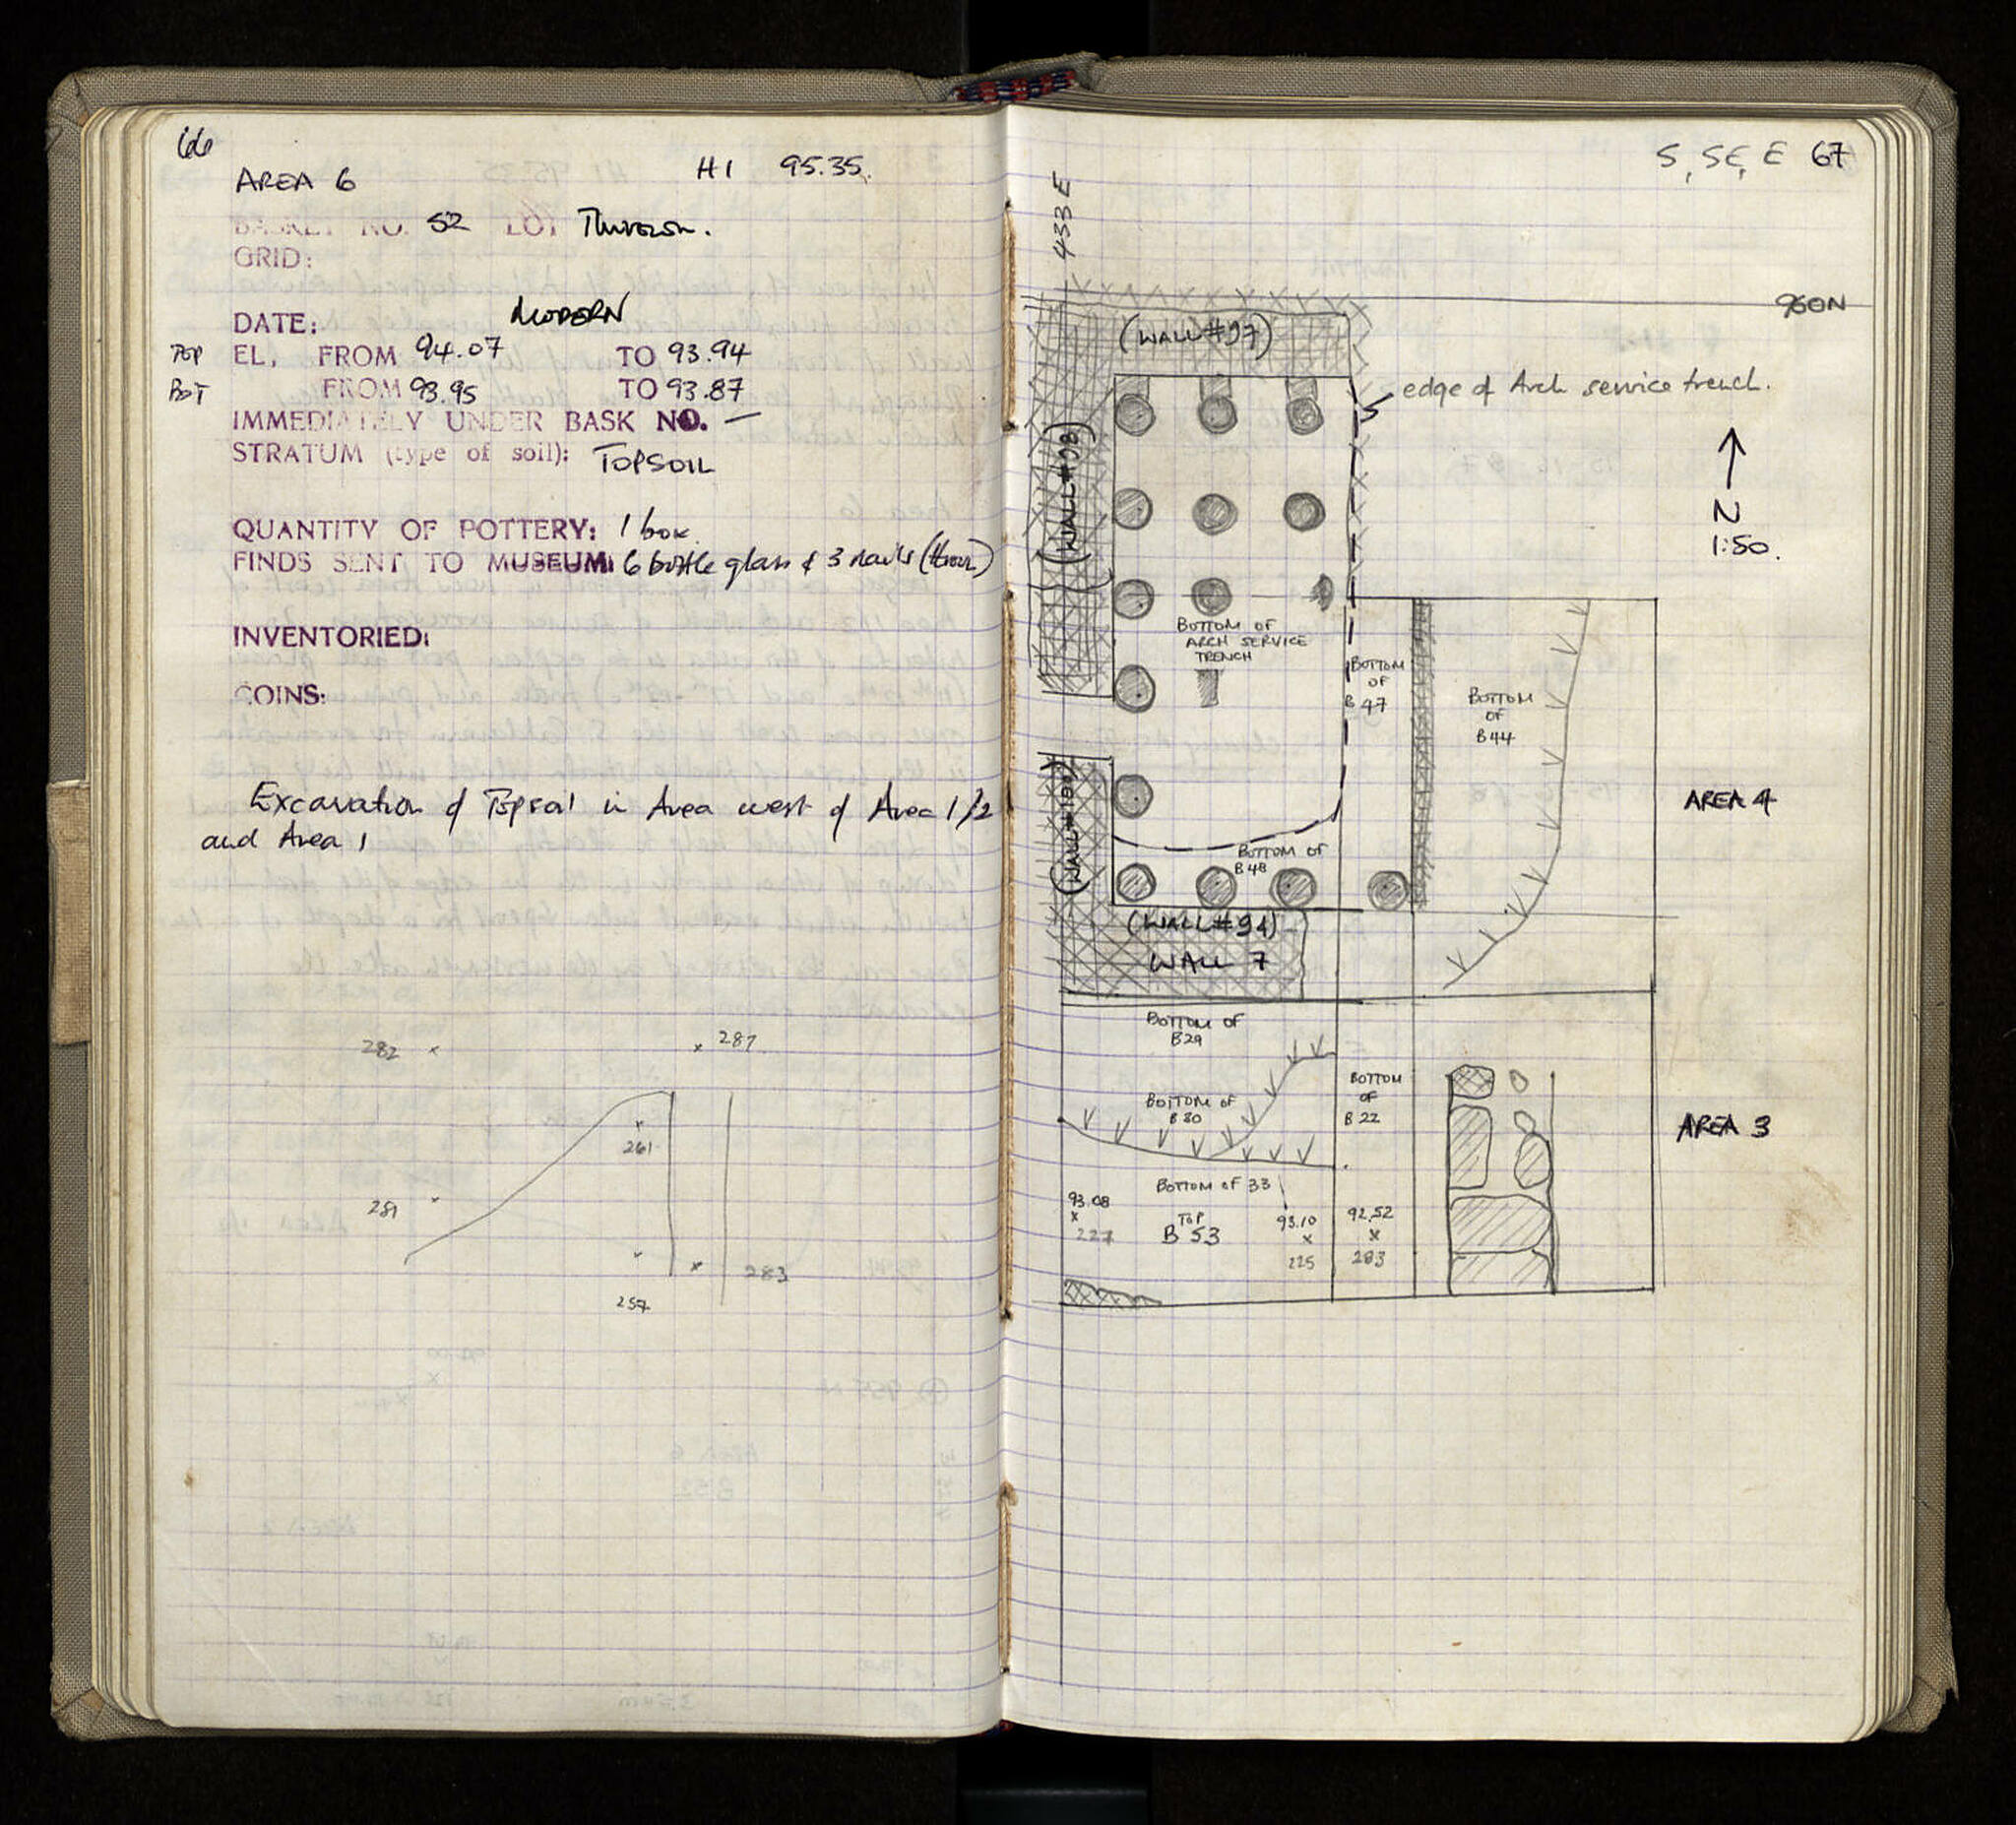 66
AREA 6
HI 95.35
BASKET NO. 52 LOT
GRID:
MODERN
DATE:
TOP EL, FROM 94.07 TO 93.94
BOT FROM 93.95 TO 93.87
IMMEDIATELY UNDER BASK NO. —
STRATUM (type of soil): TOPSOIL
QUANTITY OF POTTERY: 1 box
FINDS SENT TO MUSEUM: 6 bottle glass & 3 nails
INVENTORIED:
COINS:
Excavation of Topsoil in Area west of Area 1/2
and Area 1
282
287
261
281
283
257
S, SE, E 67
433 E
960N
(WALL #97)
edge of Arch service trench.
(WALL #98)
N
1:50.
BOTTOM OF
ARCH SERVICE
TRENCH
BOTTOM
OF
B 47
BOTTOM
OF
B44
AREA 4
(WALL #100)
BOTTOM OF
B48
(WALL #94)
WALL 7
BOTTOM OF
B29
BOTTOM OF
B30
BOTTOM
OF
B22
AREA 3
BOTTOM OF 33
93.08
227
TOP
B 53
93.10
225
92.52
283